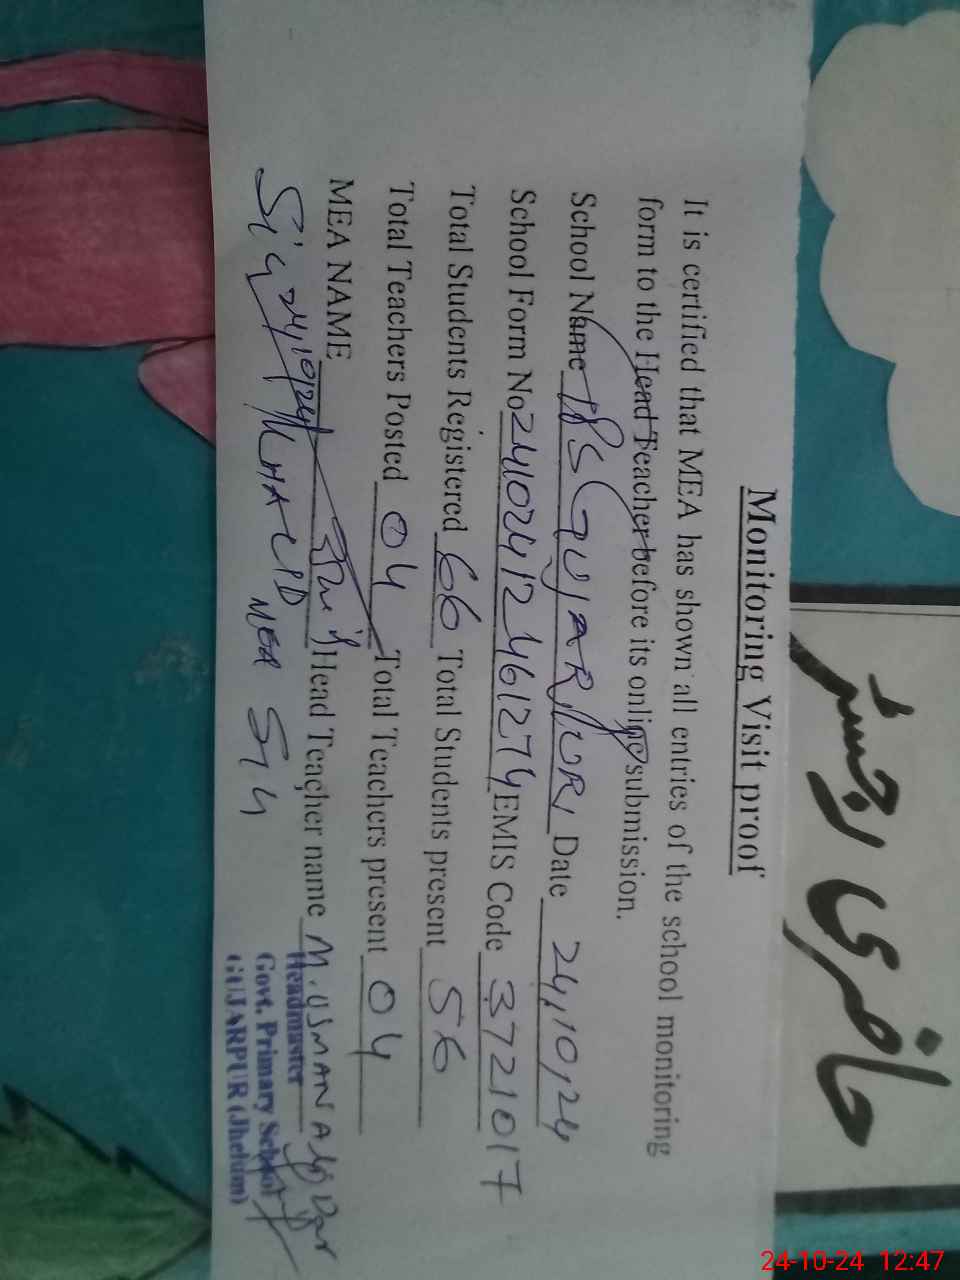 Monitoring Visit proof
It is certified that MEA has shown all entries of the school monitoring
form to the Head Teacher before its online submission.
School Name GPS GUJAR PUR Date 24,10,24
School Form No 24102412461274 EMIS Code 3721017
Total Students Registered 66 Total Students present 56
Total Teachers Posted 04 Total Teachers present 04
MEA NAME Head Teacher name M. USMAN Dar
Sig 24,10,24 KHALID MEA 514
Headmaster
Govt. Primary School
GUJARPUR (Jhelum)
حاضری رجسٹر
24-10-24 12:47